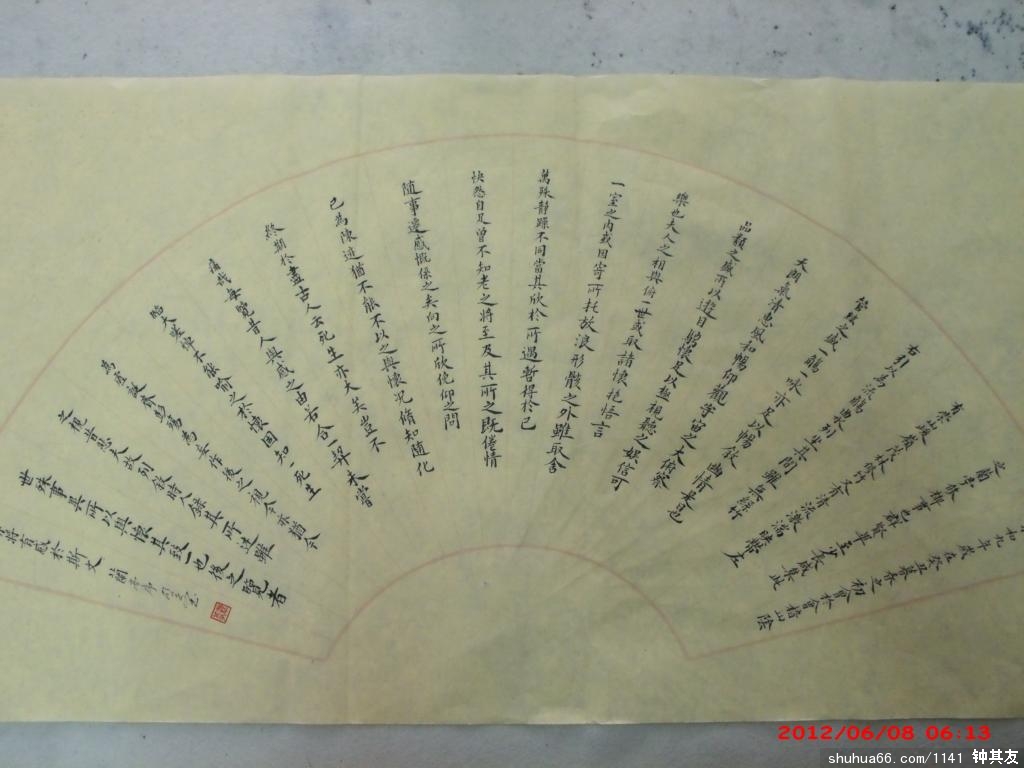 和九年歲在癸丑暮春之初會於會稽山陰
之蘭亭修禊事也群賢畢至少長咸集此
有崇山峻嶺茂林修竹又有清流激湍暎帶左
右引以為流觴曲水列坐其間雖無絲竹
管絃之盛一觴一咏亦足以暢叙幽情是日
天朗氣清惠風和暢仰觀宇宙之大俯察
品類之盛所以遊目騁懷足以極視聽之娱信可
樂也夫人之相與俯一世或取諸懷抱悟言
一室之內或因寄所托放浪形骸之外雖取舍
萬殊静躁不同當其欣於所遇暫得於己
快然自足曾不知老之將至及其所之既倦情
随事遷感慨係之矣向之所欣俛仰之間
已為陳迹猶不能不以之興懷况脩短随化
終期於盡古人云死生亦大矣豈不
痛哉每覽昔人興感之由若合一契未嘗
臨文嗟悼不能喻之於懷固知一死生
為虛誕齊彭殤為妄作後之視今亦猶今
之視昔悲夫故列叙時人錄其所述雖
世殊事異所以興懷其致一也後之覽者
將有感於斯文 蘭亭序
2012/06/08 06:13
shuhua66.com/1141 钟其友